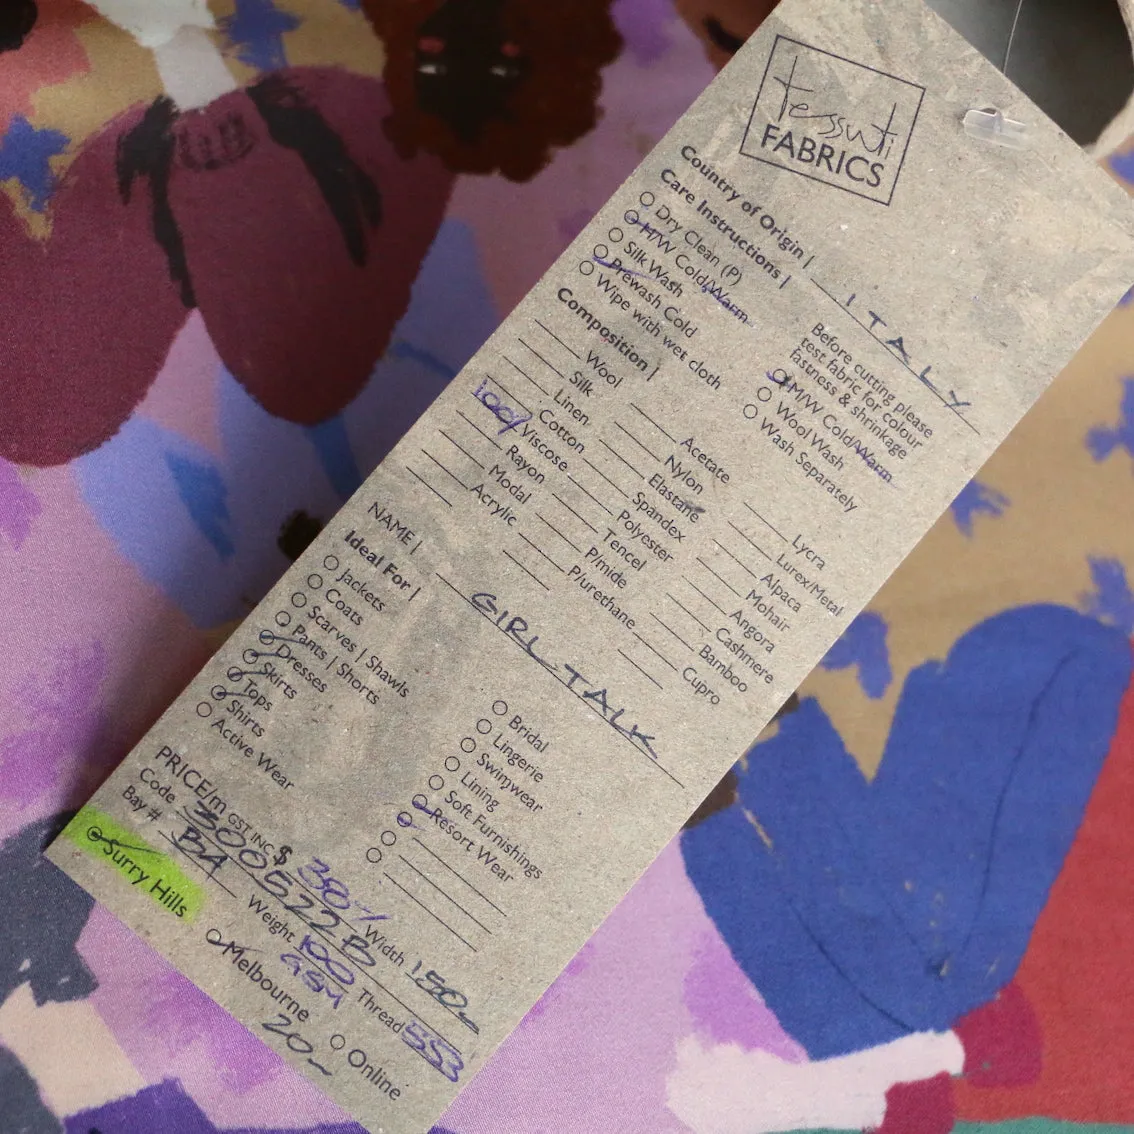 tessuti
FABRICS
Country of Origin | ITALY
Care Instructions |
Dry Clean (P)
H/W Cold/Warm
Silk Wash
Prewash Cold
Wipe with wet cloth
Before cutting please
test fabric for colour
fastness & shrinkage
M/W Cold/Warm
Wool Wash
Wash Separately
Composition |
Wool
Silk
Linen
Cotton
100% Viscose
Rayon
Modal
Acrylic
Acetate
Nylon
Elastane
Spandex
Polyester
Tencel
P/mide
P/urethane
Lycra
Lurex/Metal
Alpaca
Mohair
Angora
Cashmere
Bamboo
Cupro
NAME | GIRL TALK
Ideal For |
Jackets
Coats
Scarves | Shawls
Pants | Shorts
Dresses
Skirts
Tops
Shirts
Active Wear
Bridal
Lingerie
Swimwear
Lining
Soft Furnishings
Resort Wear
PRICE/m GST INC $ 38
Code 300522B Width 150
Bay # BA Weight 100 GSM Thread 553
Surry Hills Melbourne Online
20